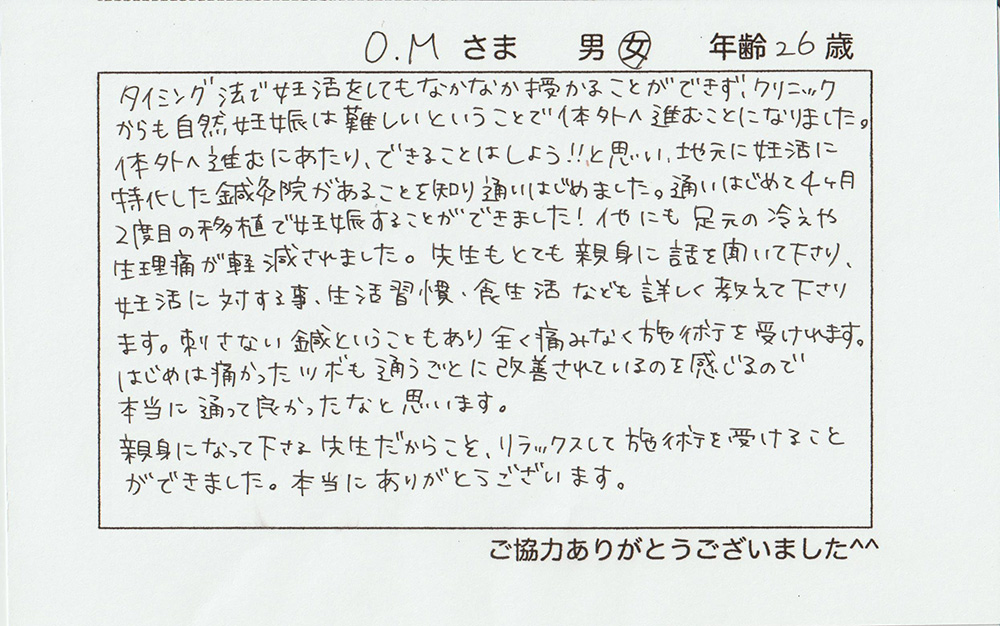 O.M さま 男 女 年齢 26 歳
タイミング法で妊活をしてもなかなか授かることができず、クリニック
からも自然妊娠は難しいということで体外へ進むことになりました。
体外へ進むにあたり、できることはしよう!!と思い、地元に妊活に
特化した鍼灸院があることを知り通いはじめました。通いはじめて4ヶ月
2度目の移植で妊娠することができました!他にも足元の冷えや
生理痛が軽減されました。先生もとても親身に話を聞いて下さり、
妊活に対する事、生活習慣、食生活なども詳しく教えて下さり
ます。刺さない鍼ということもあり全く痛みなく施術を受けれます。
はじめは痛かったツボも通うごとに改善されているのを感じるので
本当に通って良かったなと思います。
親身になって下さる先生だからこそ、リラックスして施術を受けること
ができました。本当にありがとうございます。
ご協力ありがとうございました^^